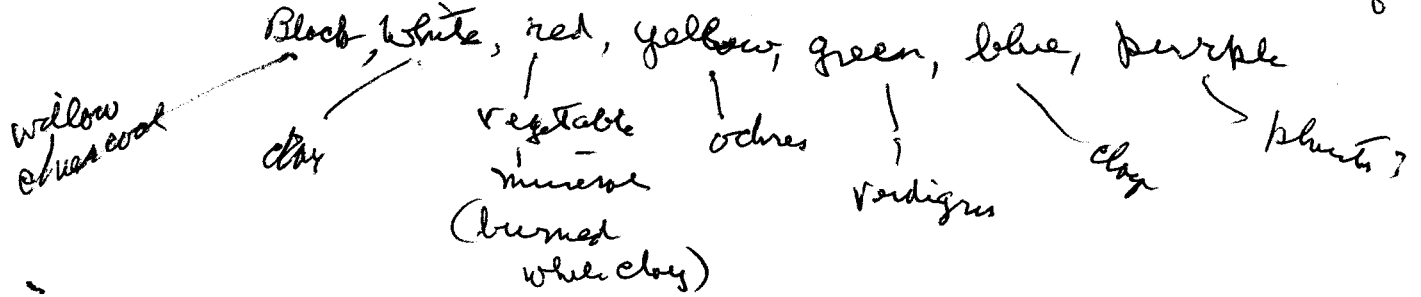 Black, white, red, yellow, green, blue, purple
willow charcoal
clay
vegetable
mineral
(burned
white clay)
ochres
verdigris
clay
plants?